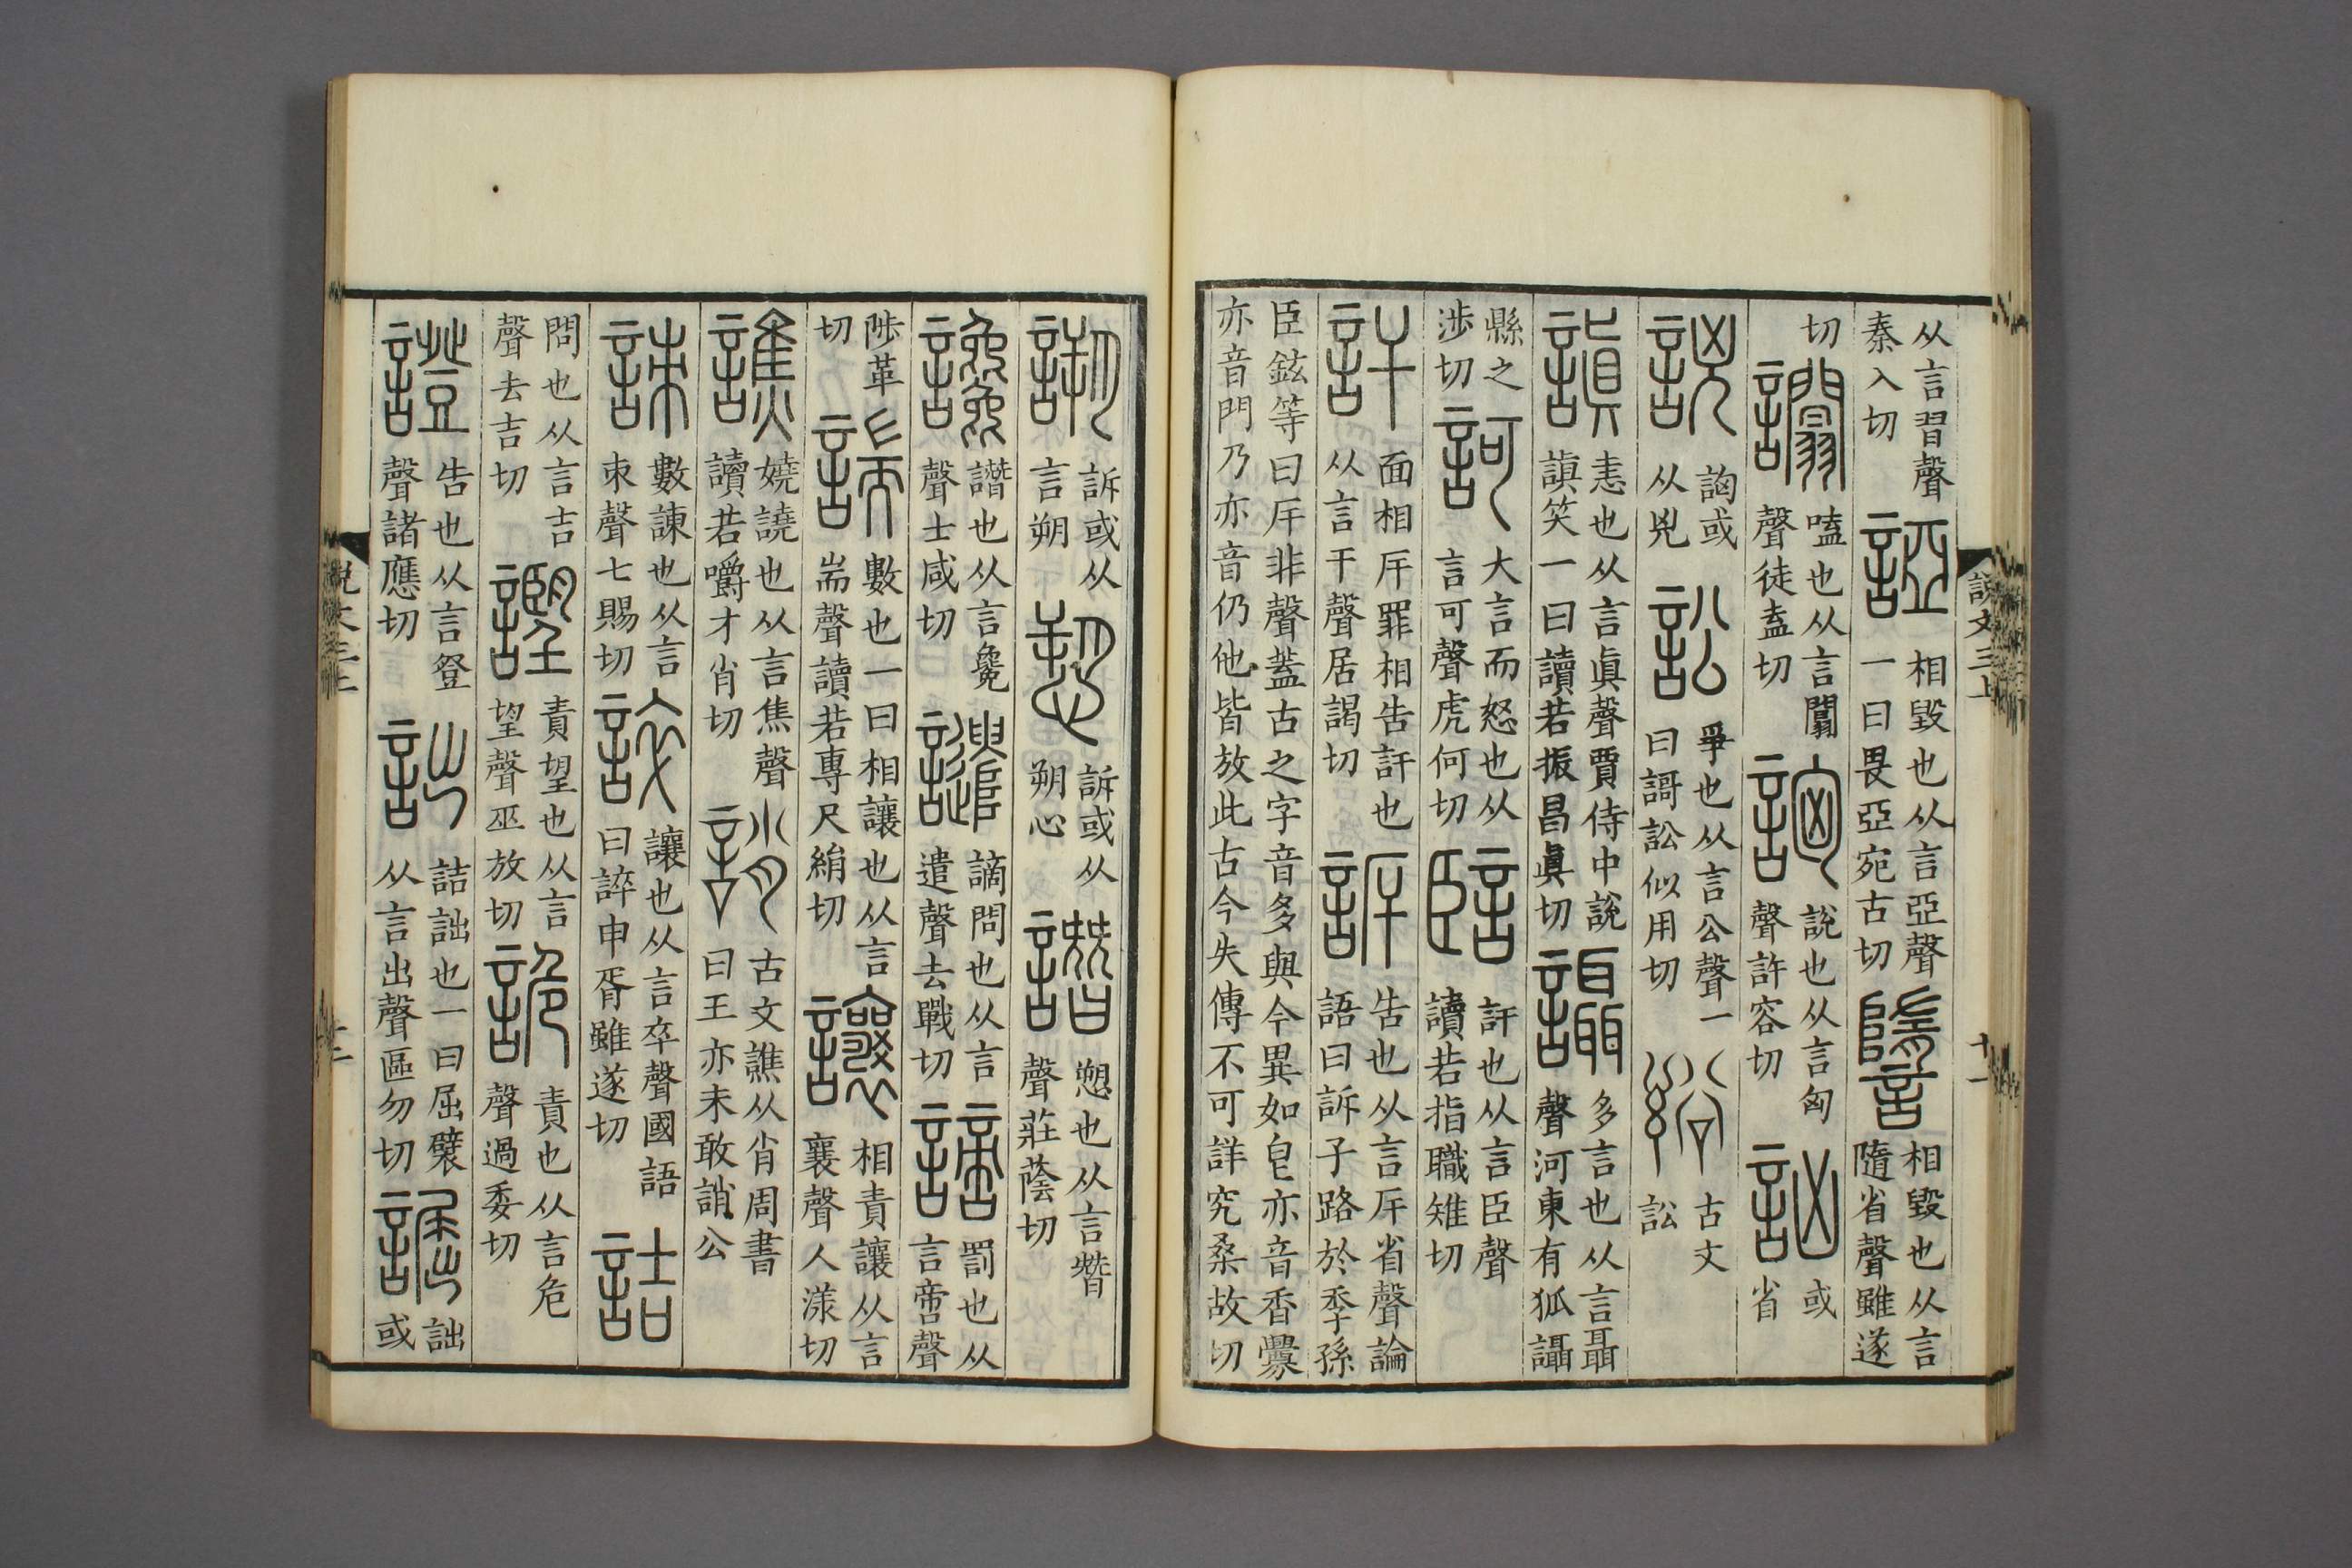 从言習聲秦入切 䛩 相毀也从言亞聲一曰畏亞宛古切 䜐 相毀也从言隨省聲雖遂
切 䜚 嗑也从言闒聲徒盍切 詾 說也从言匈聲許容切 訩 或省
詾或从兇 訟 爭也从言公聲一曰謌訟似用切 古文訟
謓 恚也从言眞聲賈侍中說謓笑一曰讀若振昌眞切 讘 多言也从言聶聲河東有狐讘
縣之涉切 訶 大言而怒也从言可聲虎何切 訐也从言臣聲讀若指職雉切
訐 面相厈罪相告訐也从言干聲居謁切 訴 告也从言厈省聲論語曰訴子路於季孫
臣鉉等曰厈非聲蓋古之字音多與今異如皀亦音香釁亦音門乃亦音仍他皆放此古今失傳不可詳究桑故切
說文三上 十一
訴或从言朔 愬 訴或从朔心 譖 愬也从言朁聲莊蔭切
讒 譖也从言毚聲士咸切 譴 謫問也从言遣聲去戰切 謫 罰也从言啻聲
陟革切 諯 數也一曰相讓也从言耑聲讀若專尺絹切 讓 相責讓从言襄聲人漾切
譙 嬈譊也从言焦聲讀若嚼才肖切 誚 古文譙从肖周書曰王亦未敢誚公
諫 數諫也从言朿聲七賜切 誶 讓也从言卒聲國語曰誶申胥雖遂切 詰
問也从言吉聲去吉切 謹 責望也从言望聲巫放切 詭 責也从言危聲過委切
證 告也从言登聲諸應切 詘 詰詘也一曰屈襞从言出聲區勿切 詘或
說文三上 十二